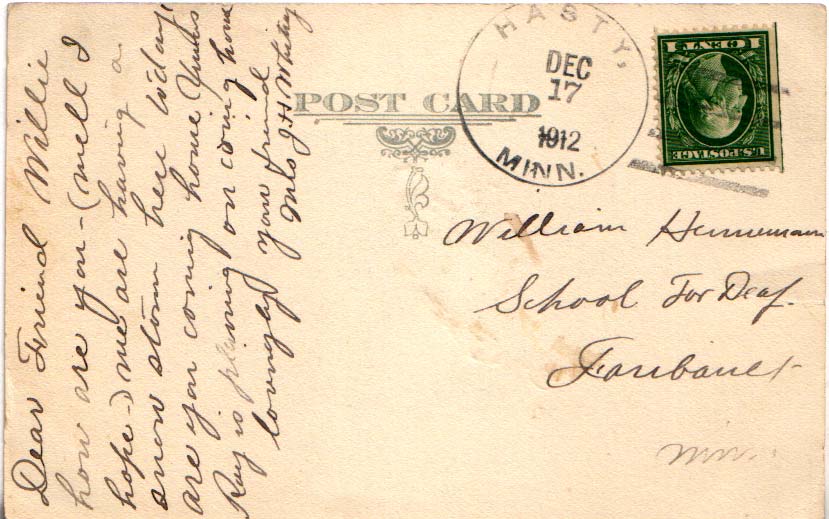 Dear Friend Willie
how are you - (well I
hope -) we are having a
snow storm here today,
are you coming home Xmas
Ray is planing on coming home
lovingly your friend
Mrs J H Whitny
POST CARD
HASTY,
DEC
17
1912
MINN.
1 CENT 1
U.S. POSTAGE
William
School For Deaf.
Faribault
Minn.